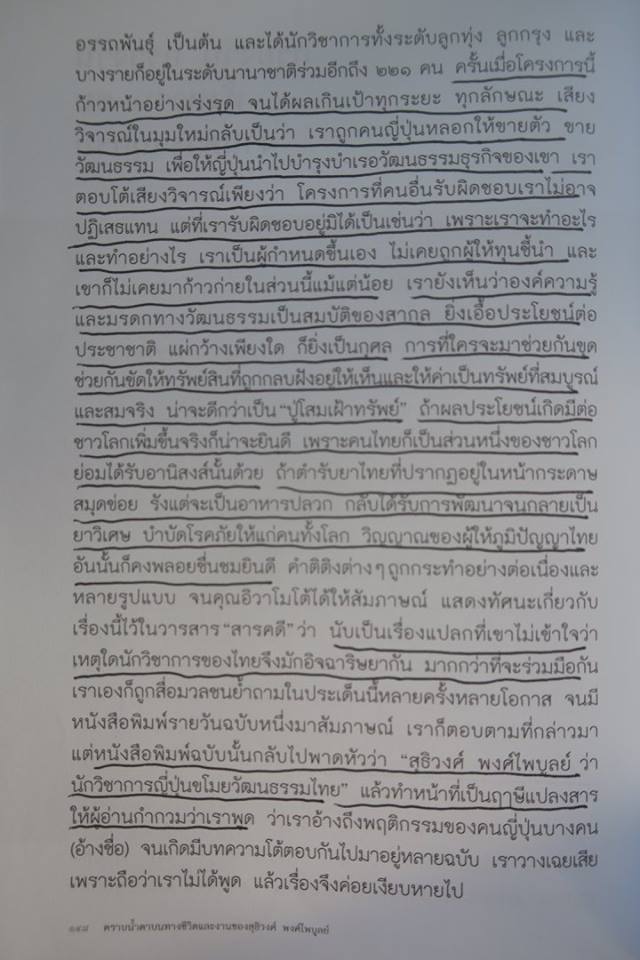 อรรถพันธุ์ เป็นต้น และได้นักวิชาการทั้งระดับลูกทุ่ง ลูกกรุง และ
บางรายก็อยู่ในระดับนานาชาติร่วมอีกถึง ๒๒๑ คน ครั้นเมื่อโครงการนี้
ก้าวหน้าอย่างเร่งรุด จนได้ผลเกินเป้าทุกระยะ ทุกลักษณะ เสียง
วิจารณ์ในมุมใหม่กลับเป็นว่า เราถูกคนญี่ปุ่นหลอกให้ขายตัว ขาย
วัฒนธรรม เพื่อให้ญี่ปุ่นนำไปบำรุงบำเรอวัฒนธรรมธุรกิจของเขา เรา
ตอบโต้เสียงวิจารณ์เพียงว่า โครงการที่คนอื่นรับผิดชอบเราไม่อาจ
ปฏิเสธแทน แต่ที่เรารับผิดชอบอยู่มิได้เป็นเช่นว่า เพราะเราจะทำอะไร
และทำอย่างไร เราเป็นผู้กำหนดขึ้นเอง ไม่เคยถูกผู้ให้ทุนชี้นำ และ
เขาก็ไม่เคยมาก้าวก่ายในส่วนนี้แม้แต่น้อย เรายังเห็นว่าองค์ความรู้
และมรดกทางวัฒนธรรมเป็นสมบัติของสากล ยิ่งเอื้อประโยชน์ต่อ
ประชาชาติ แผ่กว้างเพียงใด ก็ยิ่งเป็นกุศล การที่ใครจะมาช่วยกันขุด
ช่วยกันขัดให้ทรัพย์สินที่ถูกกลบฝังอยู่ให้เห็นและให้ค่าเป็นทรัพย์ที่สมบูรณ์
และสมจริง น่าจะดีกว่าเป็น “ปู่โสมเฝ้าทรัพย์” ถ้าผลประโยชน์เกิดมีต่อ
ชาวโลกเพิ่มขึ้นจริงก็น่าจะยินดี เพราะคนไทยก็เป็นส่วนหนึ่งของชาวโลก
ย่อมได้รับอานิสงส์นั้นด้วย ถ้าตำรับยาไทยที่ปรากฏอยู่ในหน้ากระดาษ
สมุดข่อย รังแต่จะเป็นอาหารปลวก กลับได้รับการพัฒนาจนกลายเป็น
ยาวิเศษ บำบัดโรคภัยให้แก่คนทั้งโลก วิญญาณของผู้ให้ภูมิปัญญาไทย
อันนั้นก็คงพลอยชื่นชมยินดี คำติติงต่างๆ ถูกกระทำอย่างต่อเนื่องและ
หลายรูปแบบ จนคุณอิวาโมโต้ได้ให้สัมภาษณ์ แสดงทัศนะเกี่ยวกับ
เรื่องนี้ไว้ในวารสาร “สารคดี” ว่า นับเป็นเรื่องแปลกที่เขาไม่เข้าใจว่า
เหตุใดนักวิชาการของไทยจึงมักอิจฉาริษยากัน มากกว่าที่จะร่วมมือกัน
เราเองก็ถูกสื่อมวลชนย้ำถามในประเด็นนี้หลายครั้งหลายโอกาส จนมี
หนังสือพิมพ์รายวันฉบับหนึ่งมาสัมภาษณ์ เราก็ตอบตามที่กล่าวมา
แต่หนังสือพิมพ์ฉบับนั้นกลับไปพาดหัวว่า “สุธิวงศ์ พงศ์ไพบูลย์ ว่า
นักวิชาการญี่ปุ่นขโมยวัฒนธรรมไทย” แล้วทำหน้าที่เป็นฤาษีแปลงสาร
ให้ผู้อ่านกำกวมว่าเราพูด ว่าเราอ้างถึงพฤติกรรมของคนญี่ปุ่นบางคน
(อ้างชื่อ) จนเกิดมีบทความโต้ตอบกันไปมาอยู่หลายฉบับ เราวางเฉยเสีย
เพราะถือว่าเราไม่ได้พูด แล้วเรื่องจึงค่อยเงียบหายไป
๑๔๘ คราบน้ำตาบนทางชีวิตและงานของสุธิวงศ์ พงศ์ไพบูลย์